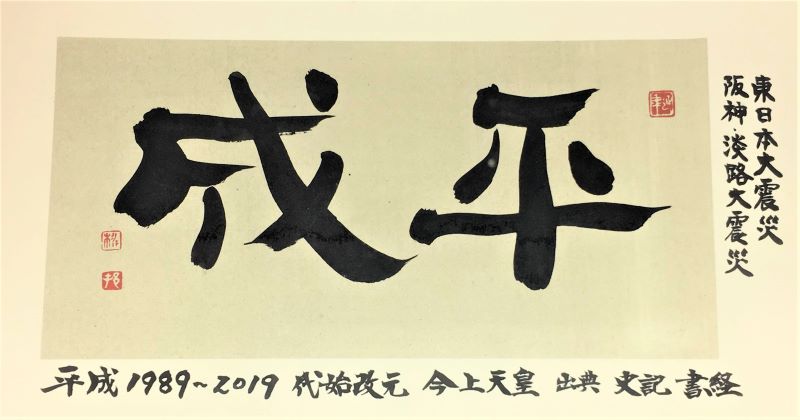 平成
東日本大震災
阪神・淡路大震災
平成1989~2019 代始改元 今上天皇 出典 史記 書経